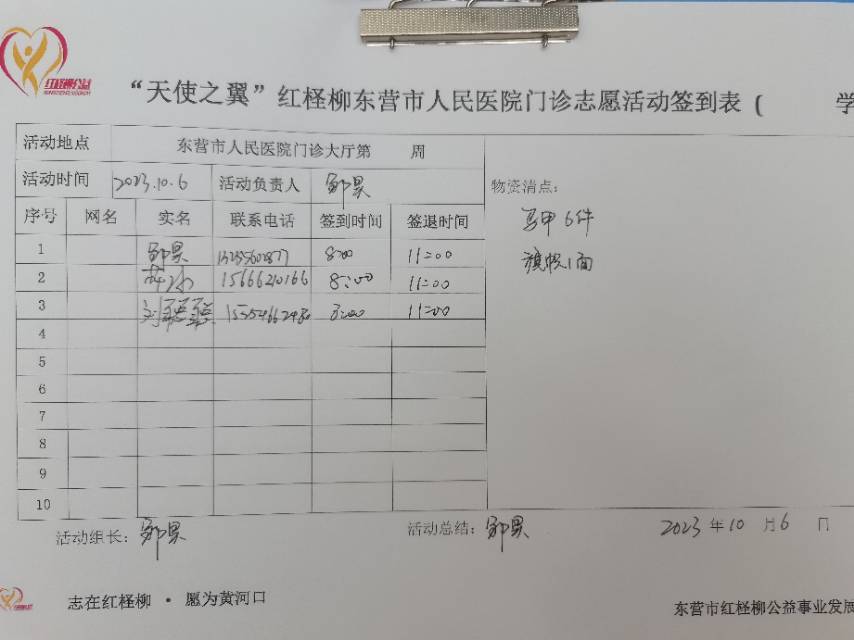 红柽柳公益
“天使之翼”红柽柳东营市人民医院门诊志愿活动签到表( 学
活动地点 东营市人民医院门诊大厅第 周
活动时间 2023.10.6 活动负责人 邹昊
物资清点:
序号 网名 实名 联系电话 签到时间 签退时间
马甲6件
1 邹昊 8:00 11:00
旗帜1面
2 15666210166 8:00 11:00
3 刘 8:00 11:00
4
5
6
7
8
9
10
活动组长: 邹昊 活动总结: 邹昊 2023年10月6日
志在红柽柳 · 愿为黄河口
东营市红柽柳公益事业发展